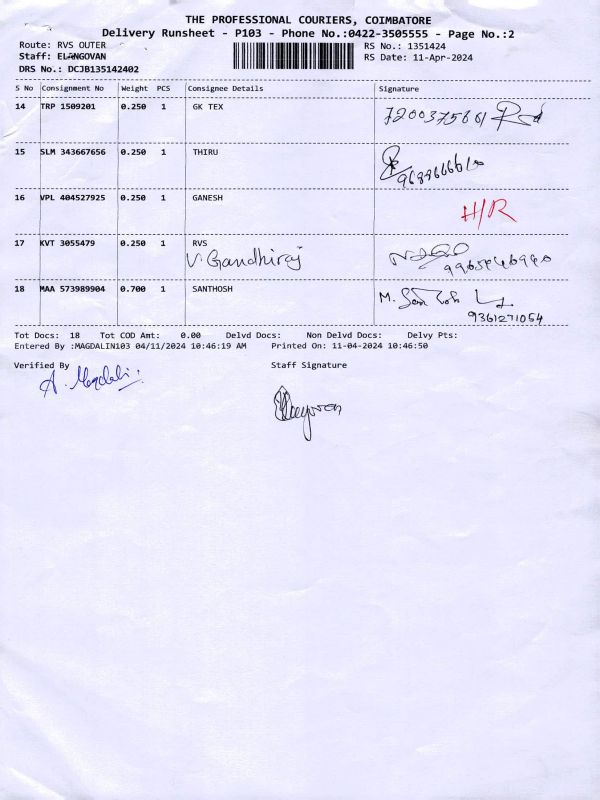 THE PROFESSIONAL COURIERS, COIMBATORE
Delivery Runsheet - P103 - Phone No.:0422-3505555 - Page No.:2
Route: RVS OUTER RS No.: 1351424
Staff: ELANGOVAN RS Date: 11-Apr-2024
DRS No.: DCJB135142402
S No Consignment No Weight PCS Consignee Details Signature
14 TRP 1509201 0.250 1 GK TEX 7200375661
15 SLM 343667656 0.250 1 THIRU
16 VPL 404527925 0.250 1 GANESH H/R
17 KVT 3055479 0.250 1 RVS
V. Gandhiraj
18 MAA 573989904 0.700 1 SANTHOSH M.
9361271054
Tot Docs: 18 Tot COD Amt: 0.00 Delvd Docs: Non Delvd Docs: Delvy Pts:
Entered By :MAGDALIN103 04/11/2024 10:46:19 AM Printed On: 11-04-2024 10:46:50
Verified By Staff Signature